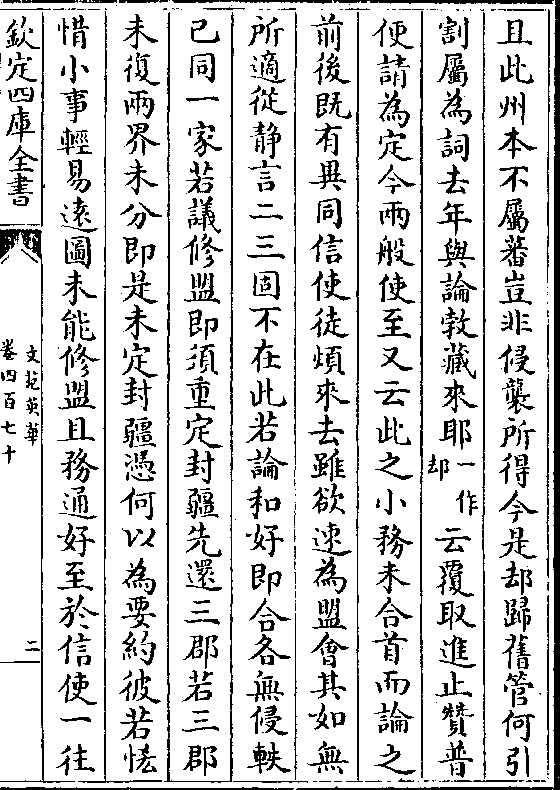 且此州本不屬蕃豈非侵襲所得今是却歸舊管何引
割屬為詞去年與論敦藏來耶一作却云覆取進止贊普
便請為定今兩般使至又云此之小務未合首而論之
前後既有異同信使徒煩來去雖欲速為盟會其如無
所適從静言二三固不在此若論和好即合各無侵軼
已同一家若議修盟即須重定封疆先還三郡若三郡
未復兩界未分即是未定封疆憑何以為要約彼若恡
惜小事輕易遠圖未能修盟且務通好至於信使一往
欽定四庫全書
文苑英華
卷四百七十
二